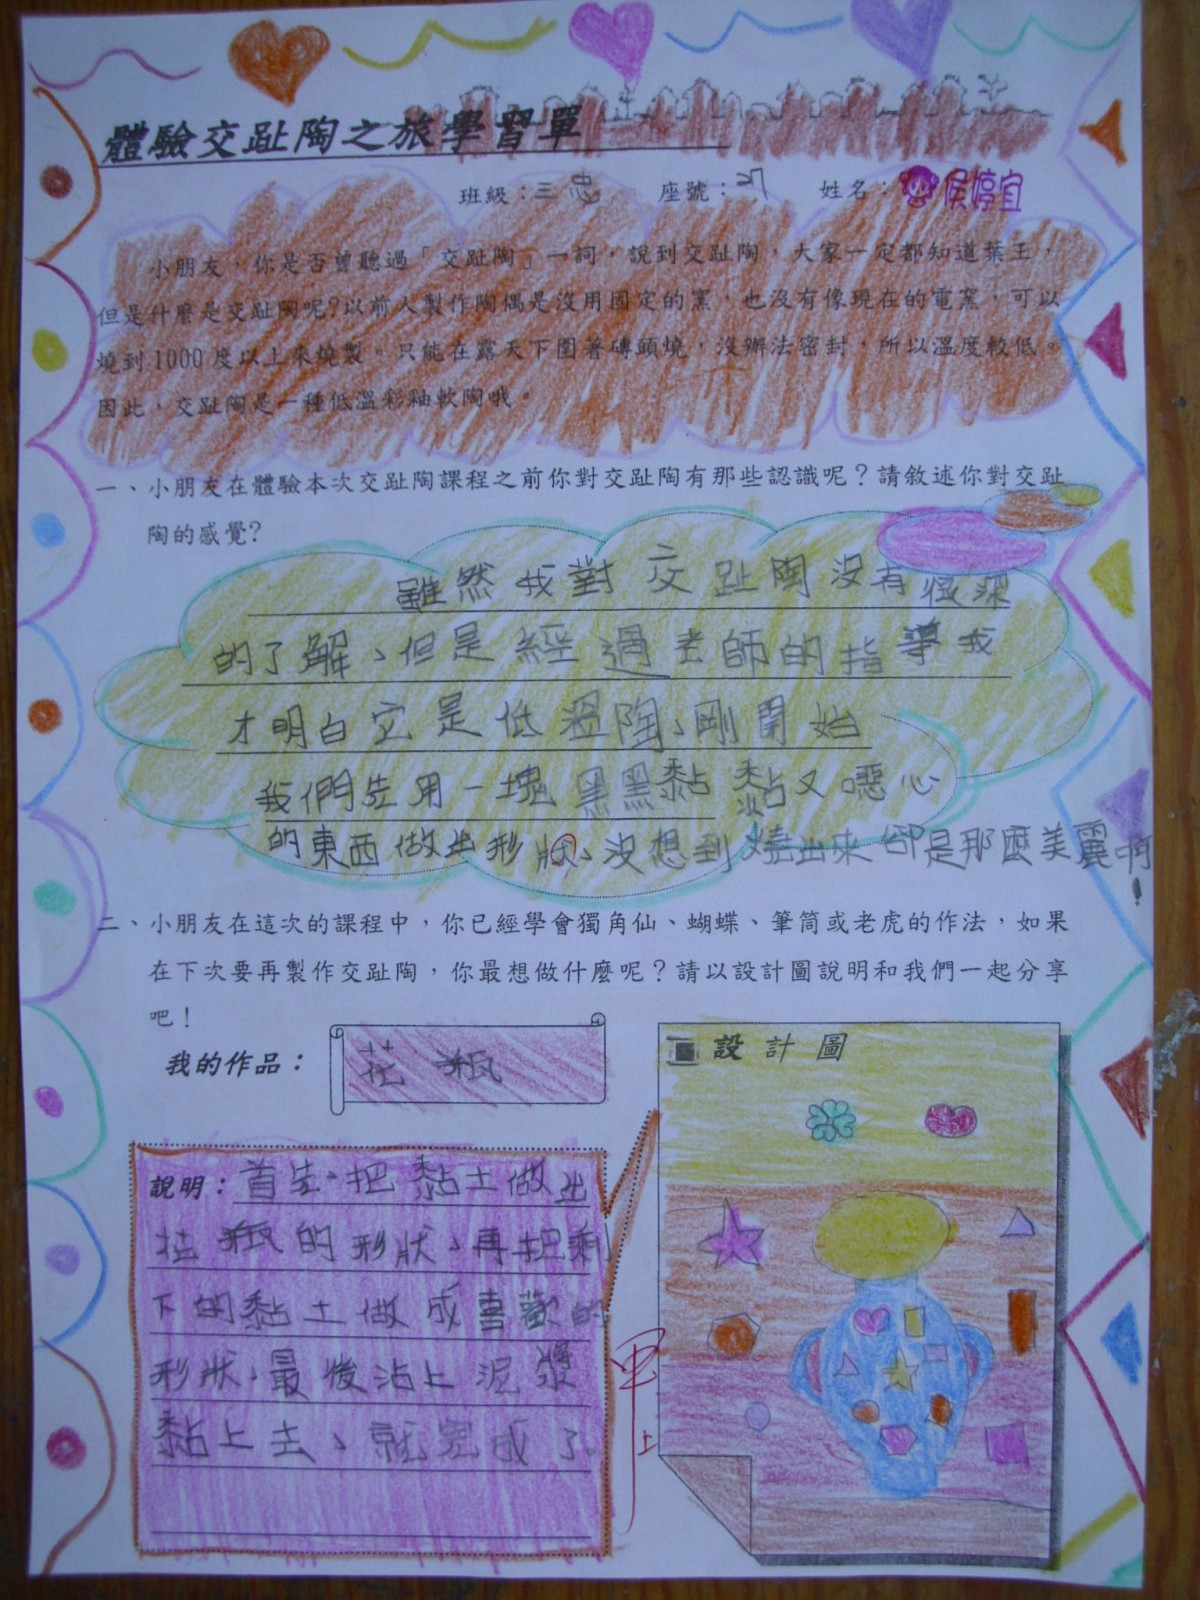 體驗交趾陶之旅學習單
班級：三忠 座號：27 姓名：侯婷宜
小朋友，你是否曾聽過「交趾陶」一詞，說到交趾陶，大家一定都知道葉王，
但是什麼是交趾陶呢?以前人製作陶偶是沒用固定的窯，也沒有像現在的電窯，可以
燒到1000度以上來燒製。只能在露天下圍著磚頭燒，沒辦法密封，所以溫度較低。
因此，交趾陶是一種低溫彩釉軟陶哦。
一、小朋友在體驗本次交趾陶課程之前你對交趾陶有那些認識呢？請敘述你對交趾
陶的感覺?
雖然我對交趾陶沒有很深
的了解、但是經過老師的指導我
才明白它是低溫陶、剛開始
我們先用一塊黑黑黏黏又噁心
的東西做出形狀、沒想到燒出來卻是那麼美麗啊!
二、小朋友在這次的課程中，你已經學會獨角仙、蝴蝶、筆筒或老虎的作法，如果
在下次要再製作交趾陶，你最想做什麼呢？請以設計圖說明和我們一起分享
吧！
我的作品：花瓶
設計圖
說明：首先、把黏土做出
花瓶的形狀、再把剩
下的黏土做成喜歡的
形狀、最後沾上泥漿
黏上去、就完成了
甲上